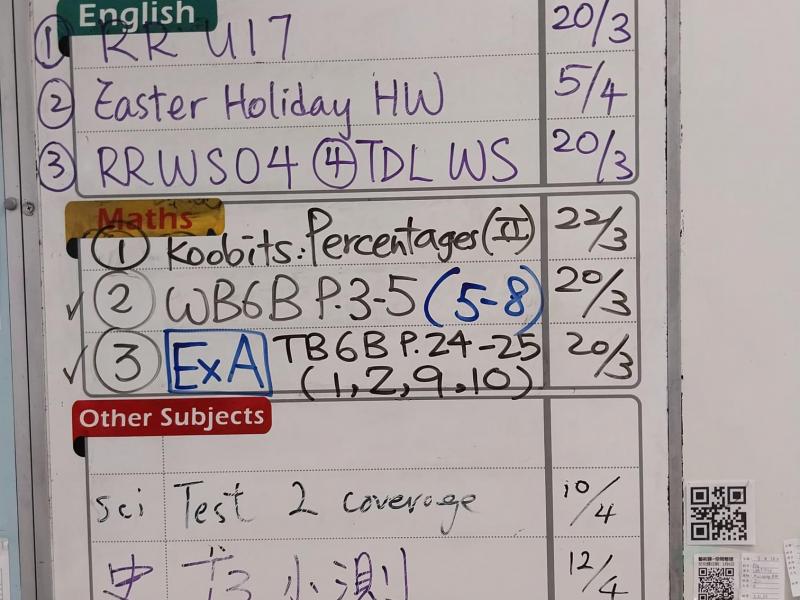 English
① RR U17 20/3
② Easter Holiday HW 5/4
③ RRWS04 ④ TDL WS 20/3
Maths
① Koobits: Percentages (II) 22/3
✓ ② WB6B P.3-5 (5-8) 20/3
✓ ③ ExA TB6B P.24-25 20/3
(1, 2, 9, 10)
Other Subjects
Sci Test 2 coverage 10/4
史 小測 12/4